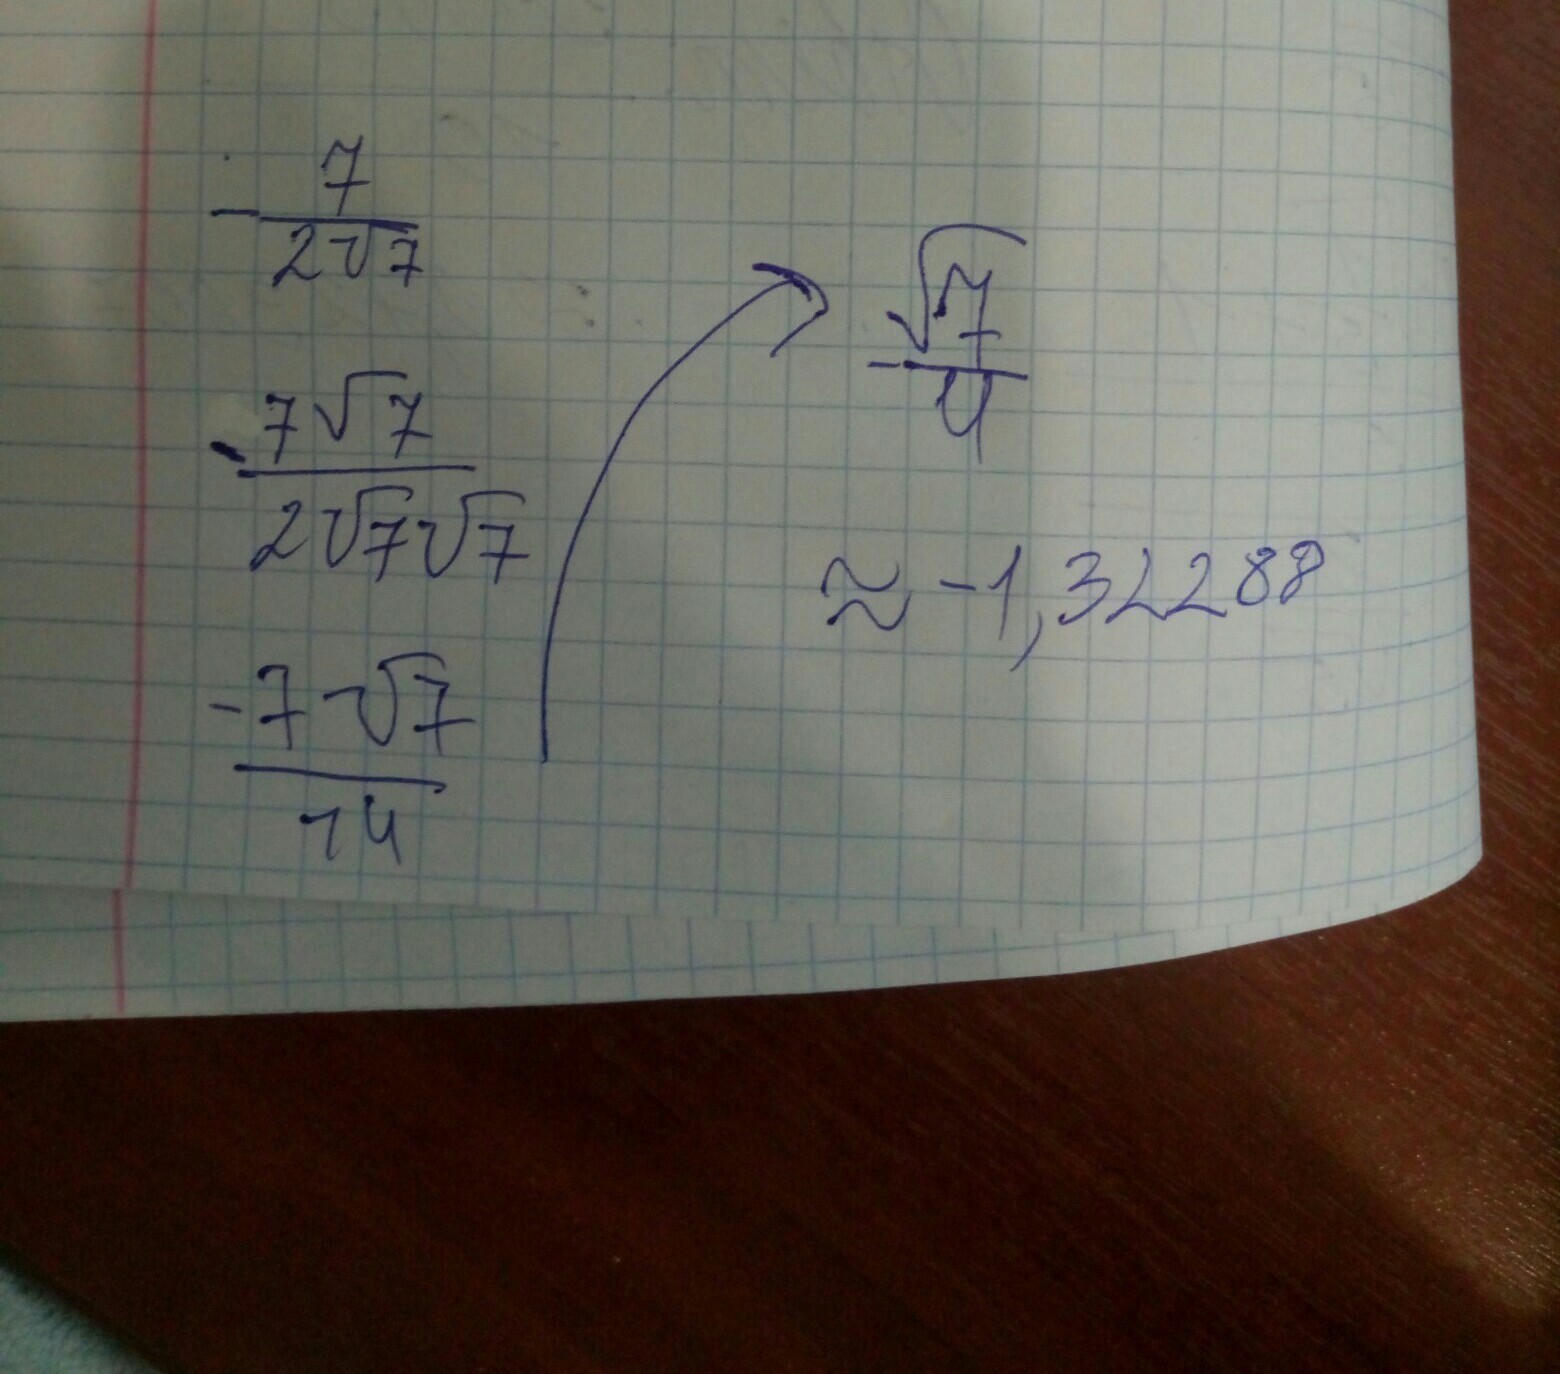 - 7 / 2√7
- 7√7 / 2√7√7
-7√7 / 14
- √7 / 4
≈ -1,32288